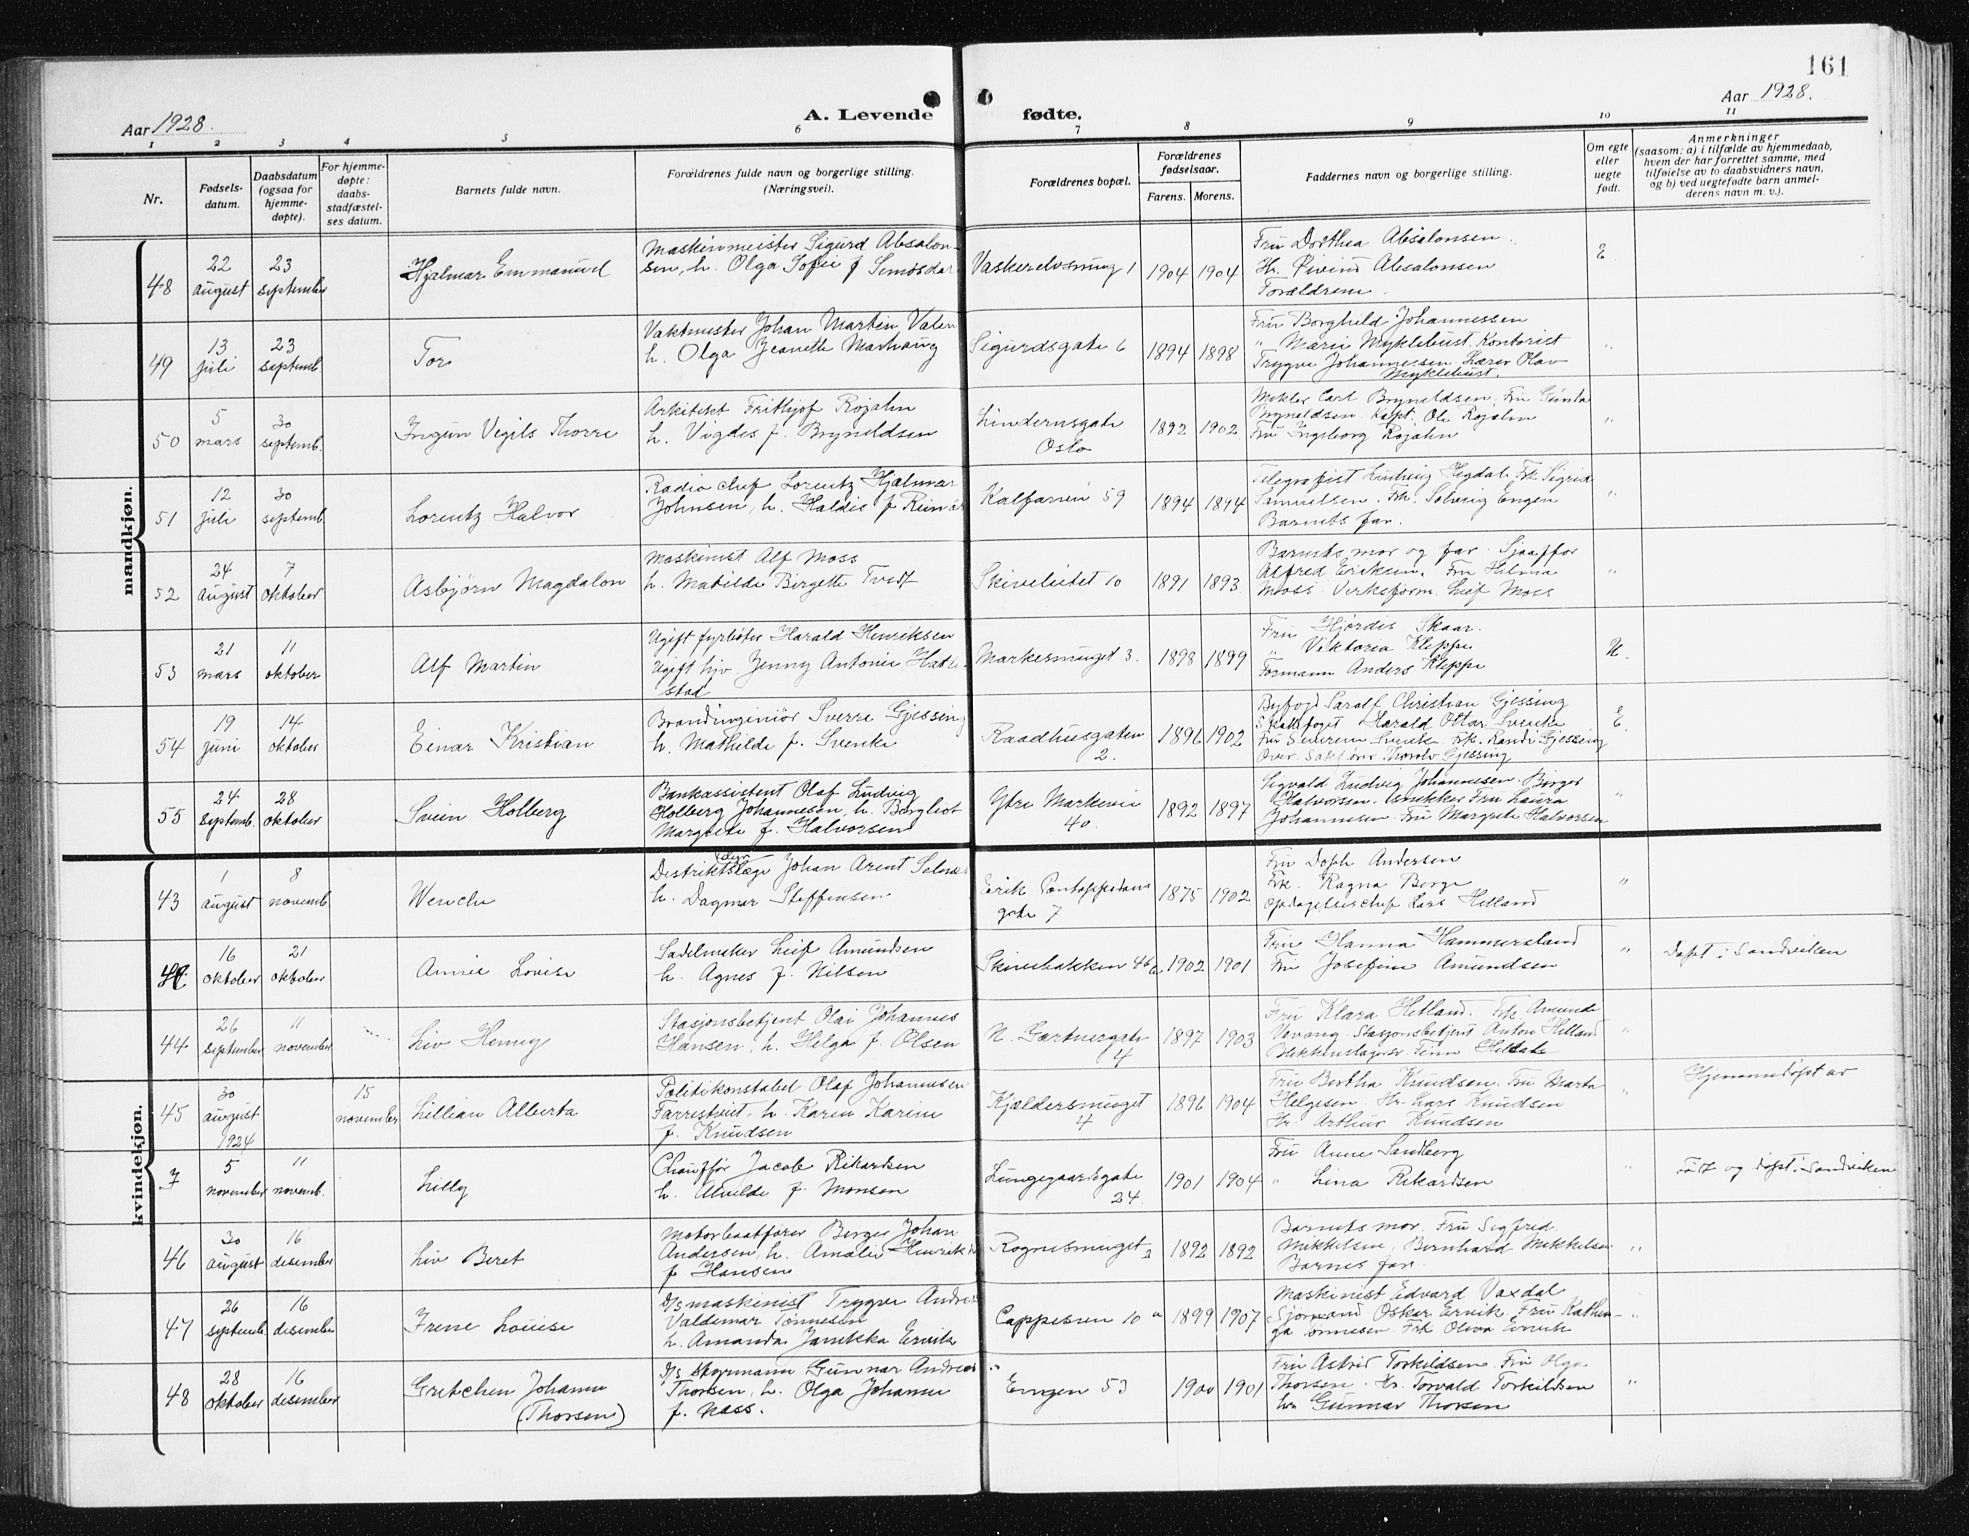 161
Aar 1928.
A. Levende fødte.
Aar 1928.
1 2 3 4 5 6 7 8 9 10 11
Nr.
Fødselsdatum.
Daabsdatum (ogsaa for hjemmedøpte).
For hjemmedøpte: daabsstadfæstelses datum.
Barnets fulde navn.
Forældrenes fulde navn og borgerlige stilling. (Næringsvei).
Forældrenes bopæl.
Forældrenes fødselsaar.
Farens. Morens.
Faddernes navn og borgerlige stilling.
Om egte eller uegte født.
Anmerkninger (saasom: a) i tilfælde av hjemmedaab, hvem der har forrettet samme, med tilføielse av to daabsvidners navn, og b) ved uegtefødte barn anmelderens navn m. v.).
mandkjøn.
48
22 august
23 september
Hjalmar Emmanuel
Maskinmeister Sigurd Absalon-
sen, h. Olga Sofie f
Vaskerelvsmug 1
1904 1904
Fru Dorthea Absalonsen.
Hr. Øivind Absalonsen
Forældrene.
E.
49
13 juli
23 septemb.
Tor
Vaktmester Johan Martin Valen
h. Olga Jeanette
Sigurdsgate 6
1894 1898
Fru Borghild Johannessen
" Marie Myklebust. Kontorist
Trygve Johannessen. Lærer Olav
Myklebust.
"
50
5 mars
30 septemb.
Ingun Vigils Thorre
Arkitekt Frithjof Rojahn
h. Vigdes f. Bryneldsen
Lindernsgate
Oslo
1892 1902
Mekler Carl Bryneldsen, Fru
Bryneldsen. Kapt. Ole Rojahn
Fru Ingeborg Rojahn
"
51
12 juli
30 septemb.
Lorentz Halvor
Radio chef Lorentz Hjalmar
Johnsen, h. Haldis f
Kalfarvei 59
1894 1894
Telegrafist Ludvig Frk. Sigrid
Samuelsen. Frk. Solveig Engen
Barnets far.
"
52
24 august
7 oktober
Asbjørn Magdalon
Maskinist Alf Moss
h. Matilde Bergette Tvedt
Skivebakken 10
1891 1893
Barnets mor og far. Sjaaffør
Alfred Eriksen. Fru Helma
Moss. Verksform. Leif Moss
"
53
21 mars
11 oktober
Alf Martin
Ugift fyrbøter Harald Henriksen
Ugift tjv Jenny Antonie Hatle-
stad
Markesmuget 3.
1898 1899
Fru Hjørdis Skaar.
" Viktoria Kleppe
Formann Anders Kleppe
U.
54
19 juni
14 oktober
Einar Kristian
Brandingeniør Sverre Gjessing
h. Mathilde f. Svenke
Raadhusgaten
2.
1896 1902
Byfogd Christian Gjessing
Harald Ottar Svenke
Fru Svenke Frk. Randi Gjessing
Over. Sakfører Thorolv Gjessing
E.
55
24 septemb.
28 oktober
Svein Holberg
Bankassistent Olaf Ludvig
Holberg Johannesen, h. Borgliot
Margrete f. Halvorsen
Ytre Markevei
40.
1892 1897
Sigvald Ludvig Johannesen. Birger
Halvorsen. Fru Laura
Johannesen. Fru Margrete Halvorsen
"
kvindekjøn.
43
1 august
8 novemb.
Wenche
Distriktslæge Johan Arent
h. Dagmar Steffensen
Erik Pontoppedans
gate 7
1875 1902
Fru Andersen
Frk. Ragna Berge
Opdagelseschef Lars Helland
"
16 oktober
21 oktober
Annie Lovise
Sadelmaker Leif Amundsen
h. Agnes f. Nilsen
Skivebakken 46
1902 1901
Fru Hanna Hammersland
Fru Josefine Amundsen
"
Døpt i Sandviken
44
26 september
11 november
Liv Henny
Stasjonsbetjent Olai Johannes
Hansen, h. Helga f. Olsen
N. Gartnergate
4
1897 1903
Fru Klara Hetland. Frk Amunda
Vevang. Stasjonsbetjent Anton Hetland
"
45
30 august 1924
15 november
Lillian Alberta
Politikonstabel Olaf Johannesen
Farrestveit, h. Karen Karine
f. Knudsen
Kjældersmuget
4
1896 1904
Fru Bertha Knudsen. Fru Marta
Helgesen. Hr. Lars Knudsen
Hr. Arthur Knudsen
"
Hjemmedøpt av
7
5 november
11 novemb.
Lilly
Chauffør Jacob Rikardsen
h. Alvilde f. Monsen
Lungegaardsgate
24
1901 1904
Fru Anne Sandberg
" Lina Rikardsen
"
Født og døpt i Sandviken
46
30 august
16 desember
Liv Beret
Motorbaatfører Berger Johan
Andersen, h. Amalie
f Hansen
Rognesmuget 3
1892 1892
Barnets mor. Fru Sigfred
Mikkelsen, Bernhard Mikkelsen
Barnes far
"
47
26 septemb
16 desember
Irene Louise
D/s maskinist Trygve Andreas
Valdemar Tønnesen
h. Amanda Ervik
Cappesvei 10 a
1899 1907
Maskinist Edvard Vaxdal
Sjømand Oskar Ervik. Fru Kathin-
ga Tønnesen Frk Oliva Ervik
"
48
28 oktober
16 desember
Gretchen Johanne
(Thorsen)
D/s Gunnar Andreas
Thorsen, h. Olga Johanne
f. Næss.
Engen 53
1900 1901
Fru Astrid Torkildsen. Fru Olga
Thorsen. Hr. Torvald Torkildsen
hr. Gunnar Thorsen
"